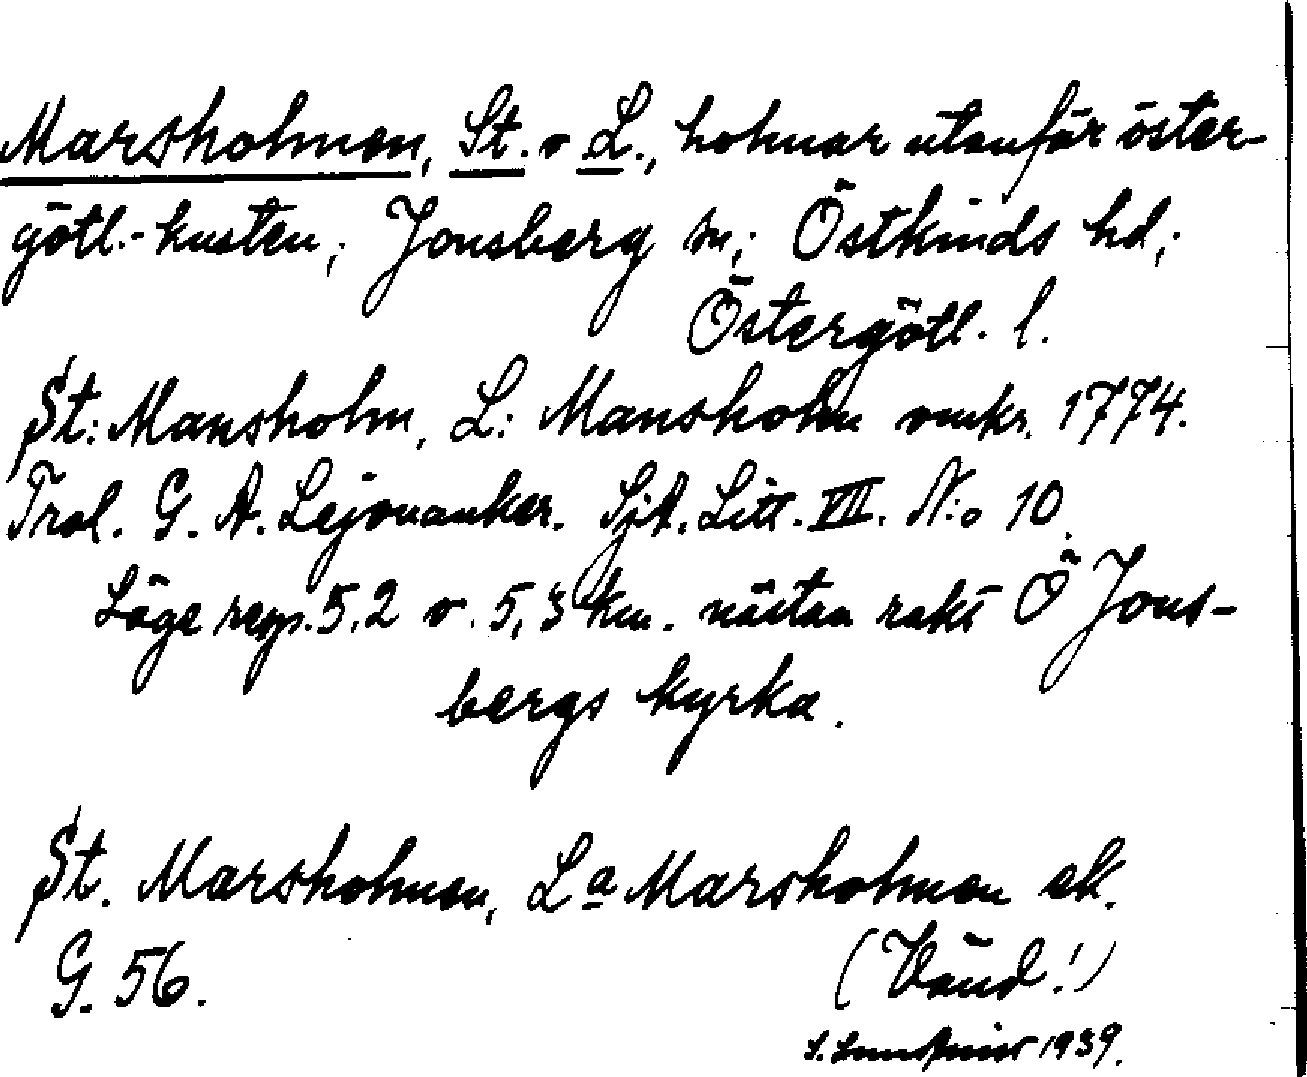 Marsholmen, St. o L., holmar utanför öster-
götl.-kusten; Jonsberg sn; Östkinds hd;
Östergötl. l.
St: Mansholm, L: Mansholm omkr. 1774.
Trol. G. A. Lejonanker. SjA. Litt. VII. N:o 10.
Läge resp. 5,2 o. 5,3 km. nästan rakt Ö Jons-
bergs kyrka.
St. Marsholmen, La Marsholmen ek.
G. 56.
(Vänd!)
S. 1939.